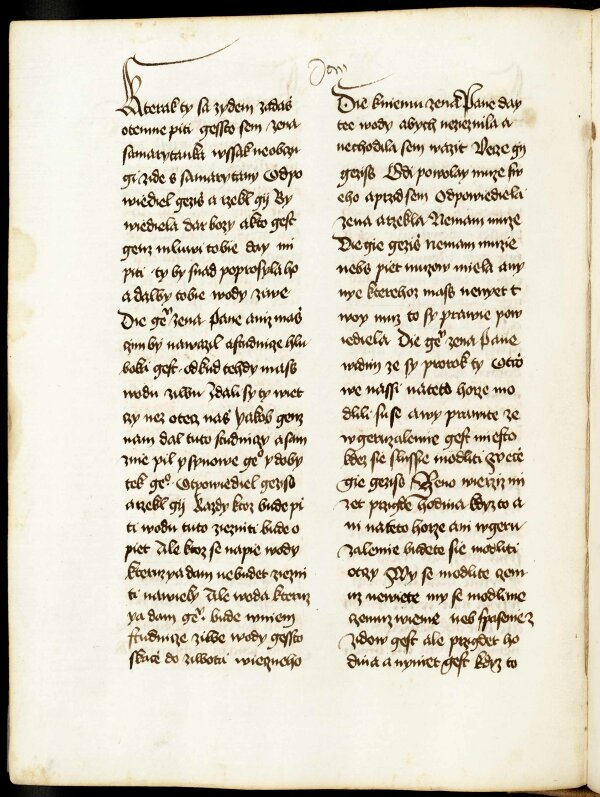 Jan
Kterak ty sa zydem zadaš
otemne piti gessto sem zena
samarytanka wssak neobczu
gi zide s samarytany Odpo
wiediel geziš a rzekl gij By
wiediela dar bozy a kto gest
genz mluwi tobie day mi
piti ty by snad poprosyla ho
a dalby tobie wody ziwe
Die geͦ zena Pane aniz maš
czim by nawazil a studnicze hlu
boka gest odkud tehdy mass
wodu ziwu Zdali sy ty wiet
czy nez otecz naš Yakob genz
nam dal tuto studniczy a sam
znie pil y synowe geͦ y doby
tek geͦ Otpowiediel geziš
a rzekl gij Kazdy ktoz bude pi
ti wodu tuto ziezniti bude o
piet Ale ktoz se napie wody
kteruz ya dam nebudet ziezni
ti nawieky Ale woda kteruz
ya dam geͧ bude wniem
studnicze ziwe wody gessto
skace do ziwota wieczneho
Die kniemu zena Pane day
tee wody abych nezieznila a
nechodila sem wazit Wece gij
geziš Gdi powolay muze sw
eho a przid sem Odpowiediela
zena a rzekla Nemam muze
Die gie geziš nemam muzie
nebs piet muzow miela a ny
nye kterehoz mass nenyet t
woy muz to sy prawie pow
iediela Die geͧ zena Pane
widim ze sy prorok ty Otczo
we nassi na teto horze mo
dlili su se a wy prawite ze
wgeruzalemie gest miesto
kdez sie slussie modliti Wecie
gie geziš Zeno wierz mi
zet przigde hodina kdyz to a
ni na teto horze ani wgeru
zalemie budete sie modliti
otczy Wy se modlite czem
uz newiete my se modlime
czemuz wieme neb spasenie z
zidow gest ale przigdet ho
dina a nyniet gest kdyz to